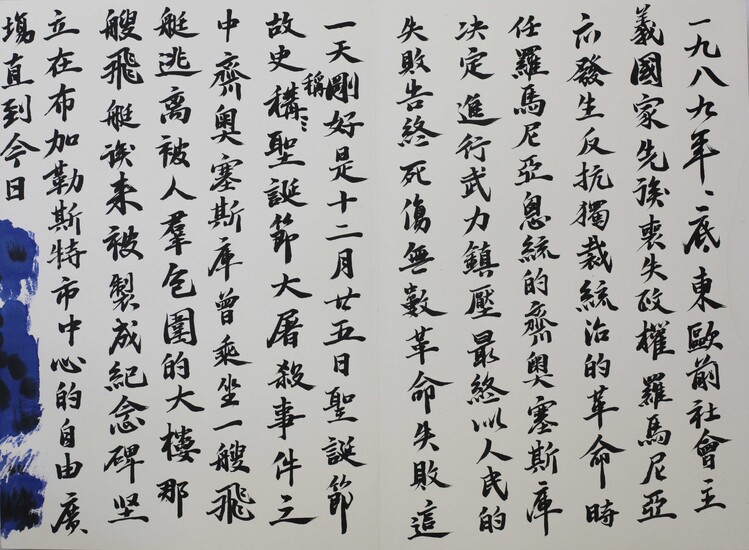 一九八九年底東歐前社會主
義國家先後喪失政權羅馬尼亞
亦發生反抗獨裁統治的革命時
任羅馬尼亞總統的齊奧塞斯庫
决定進行武力鎮壓最終以人民的
失敗告終死傷無數革命失敗這
一天剛好是十二月廿五日聖誕節
故史稱聖誕節大屠殺事件之
中齊奧塞斯庫曾乘坐一艘飛
艇逃离被人羣包圍的大樓那
艘飛艇後来被製成紀念碑坚
立在布加勒斯特市中心的自由廣
場直到今日